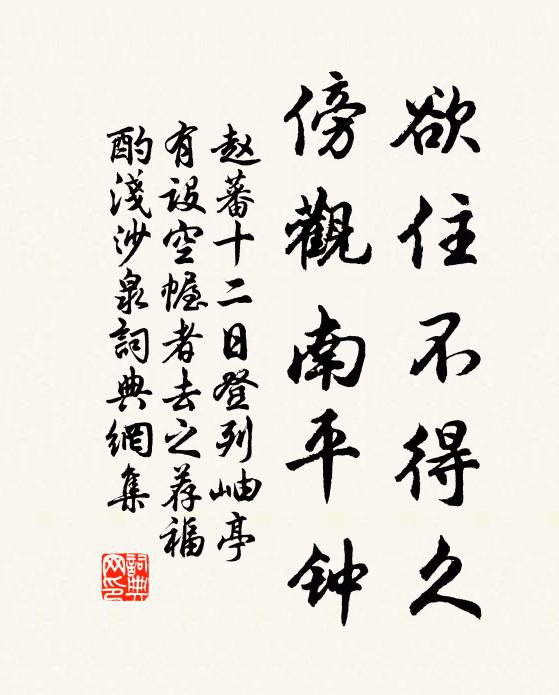 欲住不得久
傍觀南平钟
赵蕃十二日登列岫亭
有設空幄者去之荐福
酌淺沙泉詞典網集
詞典
网印